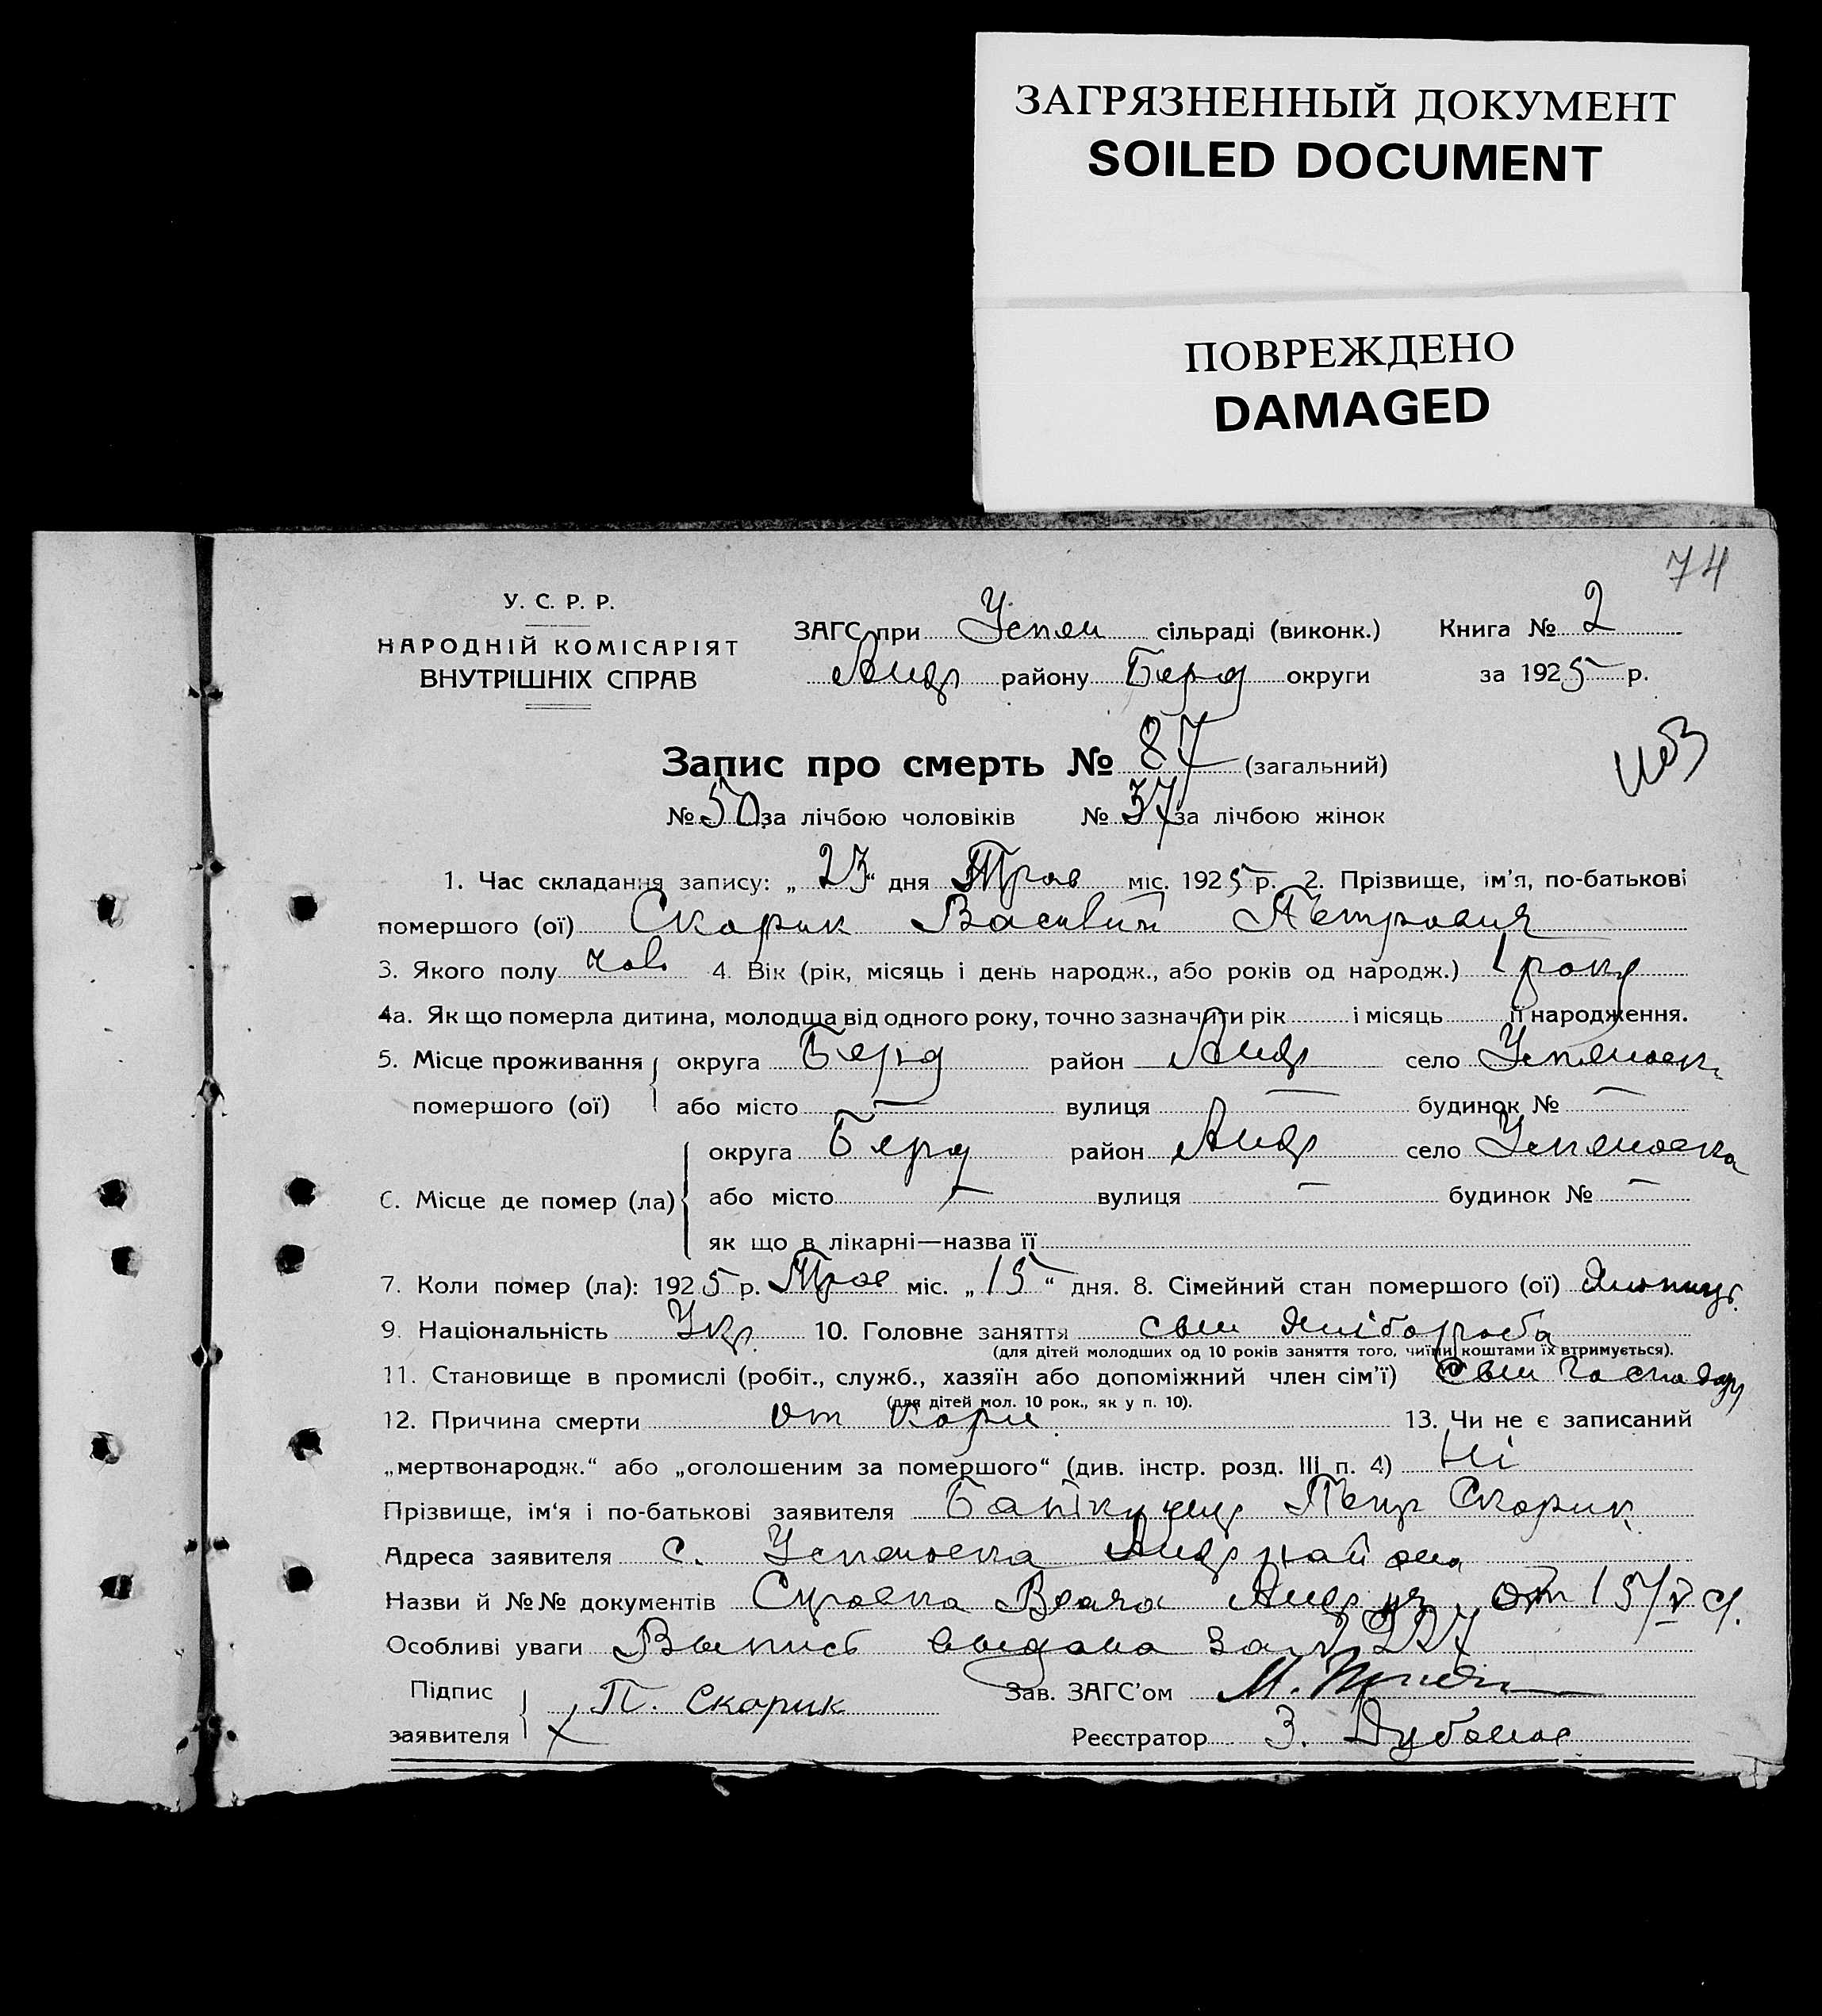 ЗАГРЯЗНЕННЫЙ ДОКУМЕНТ
SOILED DOCUMENT
ПОВРЕЖДЕНО
DAMAGED
74
У. С. Р. Р.
НАРОДНІЙ КОМІСАРІЯТ
ВНУТРІШНІХ СПРАВ
ЗАГС при Успен сільраді (виконк.) Книга № 2
Андр району Берд округи за 1925 р.
Запис про смерть № 87 (загальний)
№ 50 за лічбою чоловіків № 37 за лічбою жінок
1. Час складання запису: „23“ дня Трав міс. 1925 р. 2. Прізвище, ім'я, по-батькові
помершого (ої) Скорик Василий Петрович
3. Якого полу чол. 4. Вік (рік, місяць і день народж., або років од народж.) 1 року
4а. Як що померла дитина, молодша від одного року, точно зазначити рік і місяць її народження.
5. Місце проживання округа Берд район Андр село Успеновк
помершого (ої) або місто — вулиця — будинок № —
округа Берд район Андр село Успеновка
С. Місце де помер (ла) або місто — вулиця — будинок № —
як що в лікарні—назва її
7. Коли помер (ла): 1925 р. Трав міс. „15“ дня. 8. Сімейний стан помершого (ої)
9. Національність Укр. 10. Головне заняття син хлібороба
(для дітей молодших од 10 років заняття того, чиїми коштами їх втримується).
11. Становище в промислі (робіт., служб., хазяїн або допоміжний член сім'ї) син господар
(для дітей мол. 10 рок., як у п. 10).
12. Причина смерти от кори 13. Чи не є записаний
„мертвонародж.“ або „оголошеним за помершого“ (див. інстр. розд. III п. 4) Ні
Прізвище, ім'я і по-батькові заявителя Петр Скорик
Адреса заявителя с. Успеновка Андр район
Назви й №№ документів Справка Врача Андр от 15/V
Особливі уваги Выпись выдана за № 227
Підпис П. Скорик Зав. ЗАГС'ом М.
заявителя Реєстратор З. Дубонос